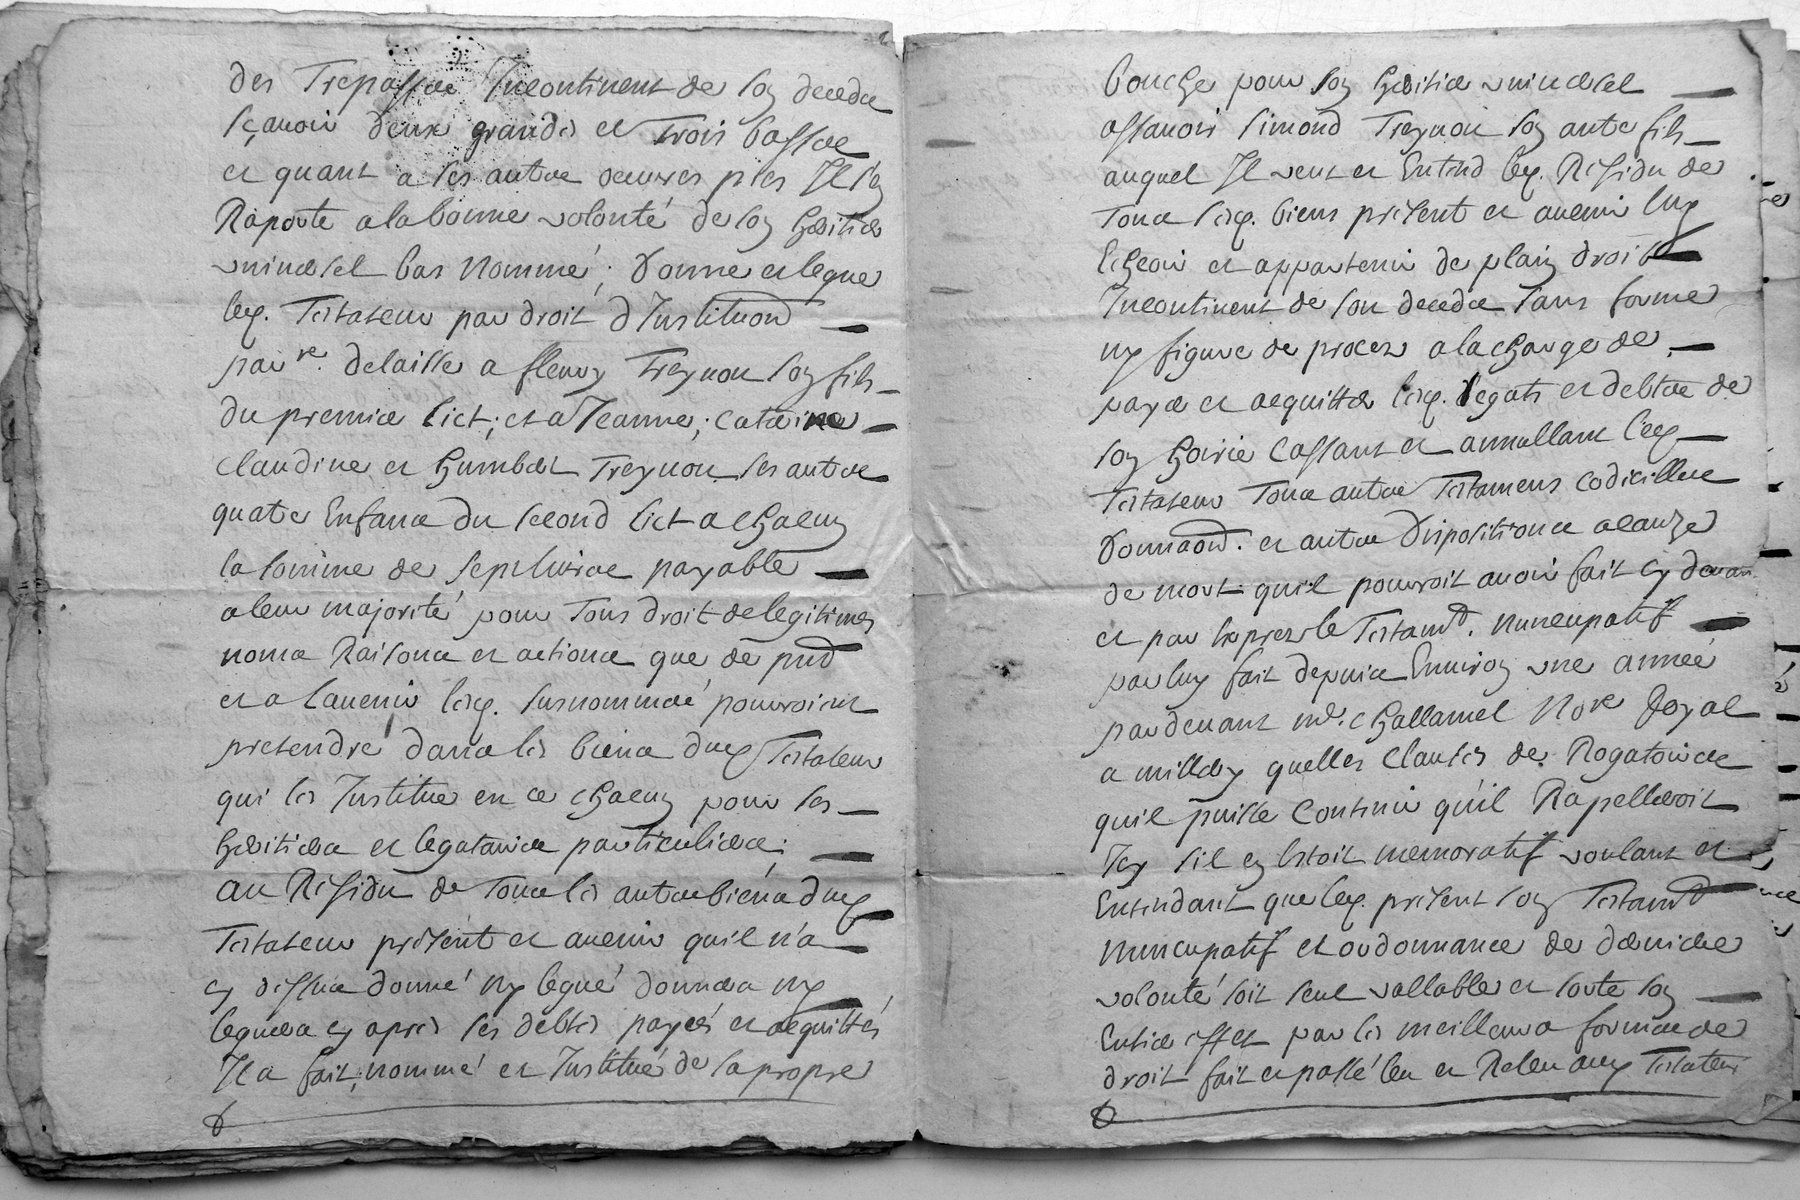 des Trepassés Incontinent de son decedes
sçauoir deux grandes et Trois basses
et quant a ses autres oeuures pies Il s'en
Raporte a la bonne volonté de son heritier
vniuersel bas nommé; Donne et legue
led. Testateur par droit d Institu͠on
par.re delaissee a fleury Treynou son fils
du premier lict; et a Jeanne; Caterine
Claudine et humbert Treynou ses autres
quatre Enfans du second lict a chacun
la somme de sept liures payable
a leur majorité pour Tous droit de legitimes
noms Raisons et actions que de p͠nt
et a l'auenir lesd. susnommés pourroient
pretendre dans les biens dud Testateur
qui les Institue en ce chacun pour ses
heritiers et legataires particuliers;
au Residu de Tous les autres biens dud
Testateur présent et auenir quil n'a
cy dessus donné ny legué donnera ny
leguera cy apres ses debtes payés et acquittés
Il a fait, nommé et Institué de sa propre
bouche pour son heritier vniuersel
assauoir Simond Treynou son autre fils
auquel Il veut et Entend led. Residu de
Tous sesd. biens présent et auenir luy
Echeoir et appartenir de plain droit
Incontinent de son decedes sans forme
ny figure de proces a la charge de
payer et acquitter lesd. legats et debtes de
son hoirie Cassant et annullant led
Testateur Tous autres Testamens codicilles
Donna͠on. et autres Dispositions a cause
de mort quil pourroit auoir fait cy deuant
et par Expres le Testam͠t. nuncupatif
par luy fait depuis Enuiron vne année
pardeuant me. Challamel No.re Royal
a millery quelles Clauses de Rogatoires
quil puisse Contenir qu'il Rapelleroit
Icy sil en Estoit memoratif voulant et
Entendant que led. présent son Testam͠t
nuncupatif et ordonnance de derniere
volonté soit seul vallable et sorte son
Entier effet par les meilleurs formes de
droit fait et passé leu et Releu aud Testateur